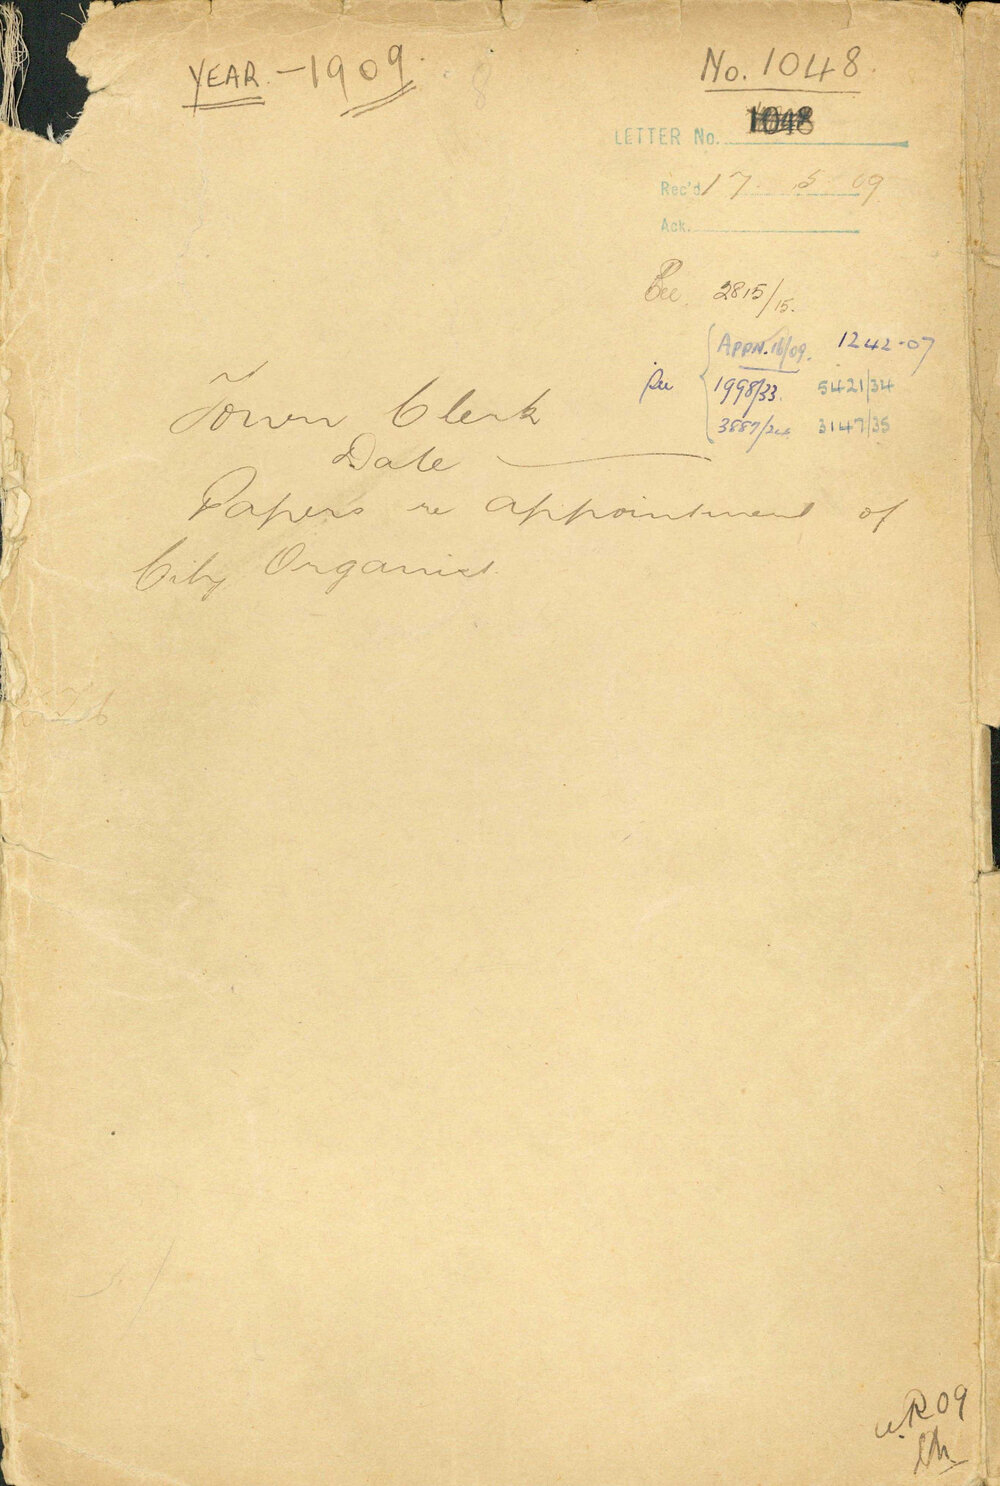 YEAR - 1909.
No. 1048.
LETTER No. 1048
Rec'd 17. 5 09
Ack.
See 2815/15.
APPN. 16/09. 1242-07
See 1998/33. 5421/34
3887/24 3147/35
Town Clerk
Date
Papers re appointment of
City Organist.
R 09